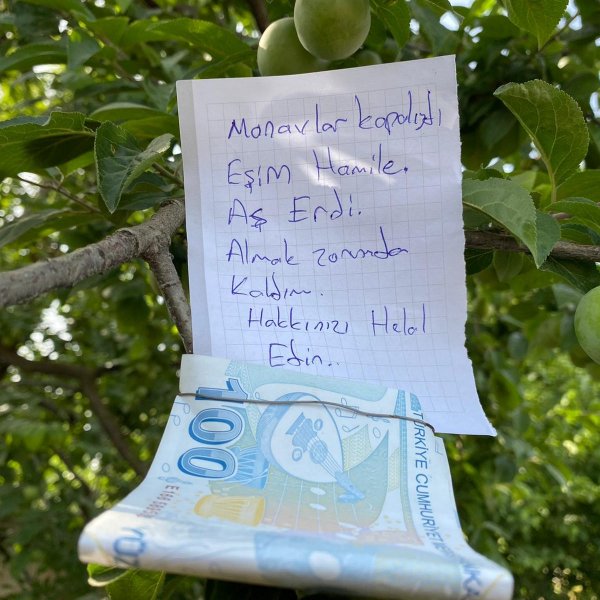 Manavlar kapalıydı
Eşim Hamile.
Aş Erdi.
Almak zorunda
Kaldım.
Hakkınızı Helal
Edin..
100
TÜRKİYE CUMHURİYE
YÜZ